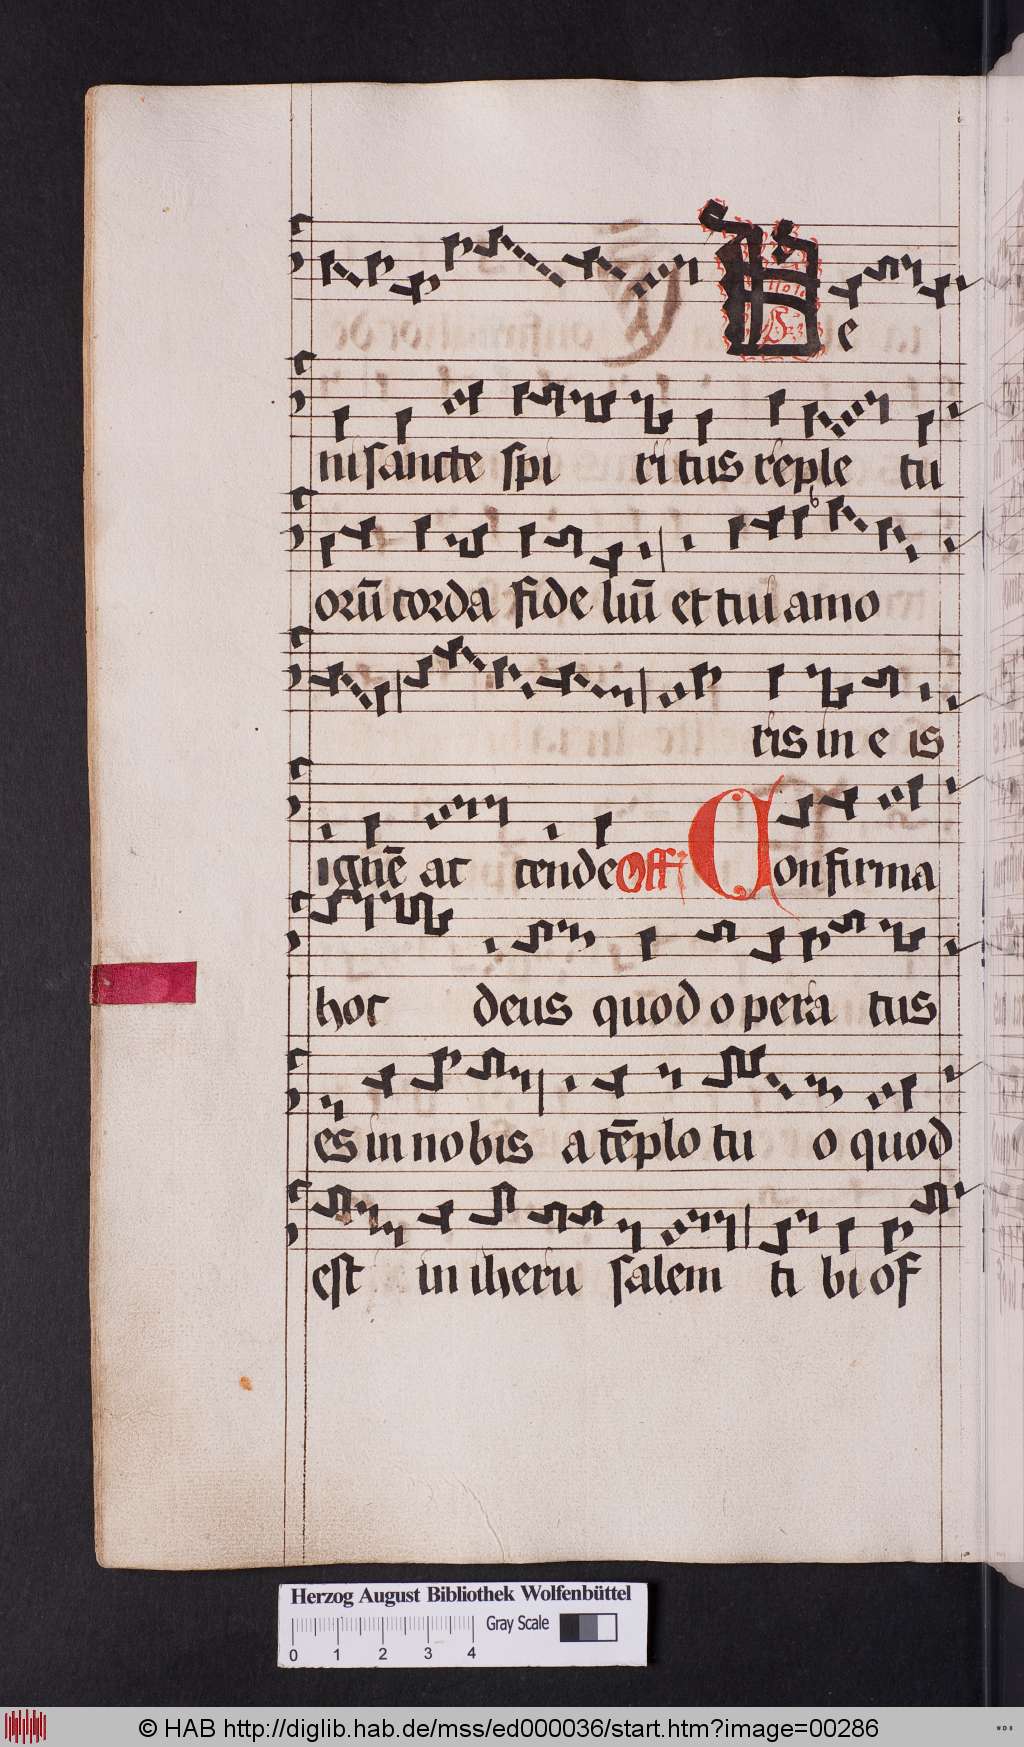 Ve
ni sancte spi ri tus reple tu
orū corda fide liū et tui amo
ris in e is
ignē ac cende Off Confirma
hoc deus quod o pera tus
es in no bis a tēplo tu o quod
est in iheru salem ti bi of
Herzog August Bibliothek Wolfenbüttel
Gray Scale
0 1 2 3 4
© HAB http://diglib.hab.de/mss/ed000036/start.htm?image=00286